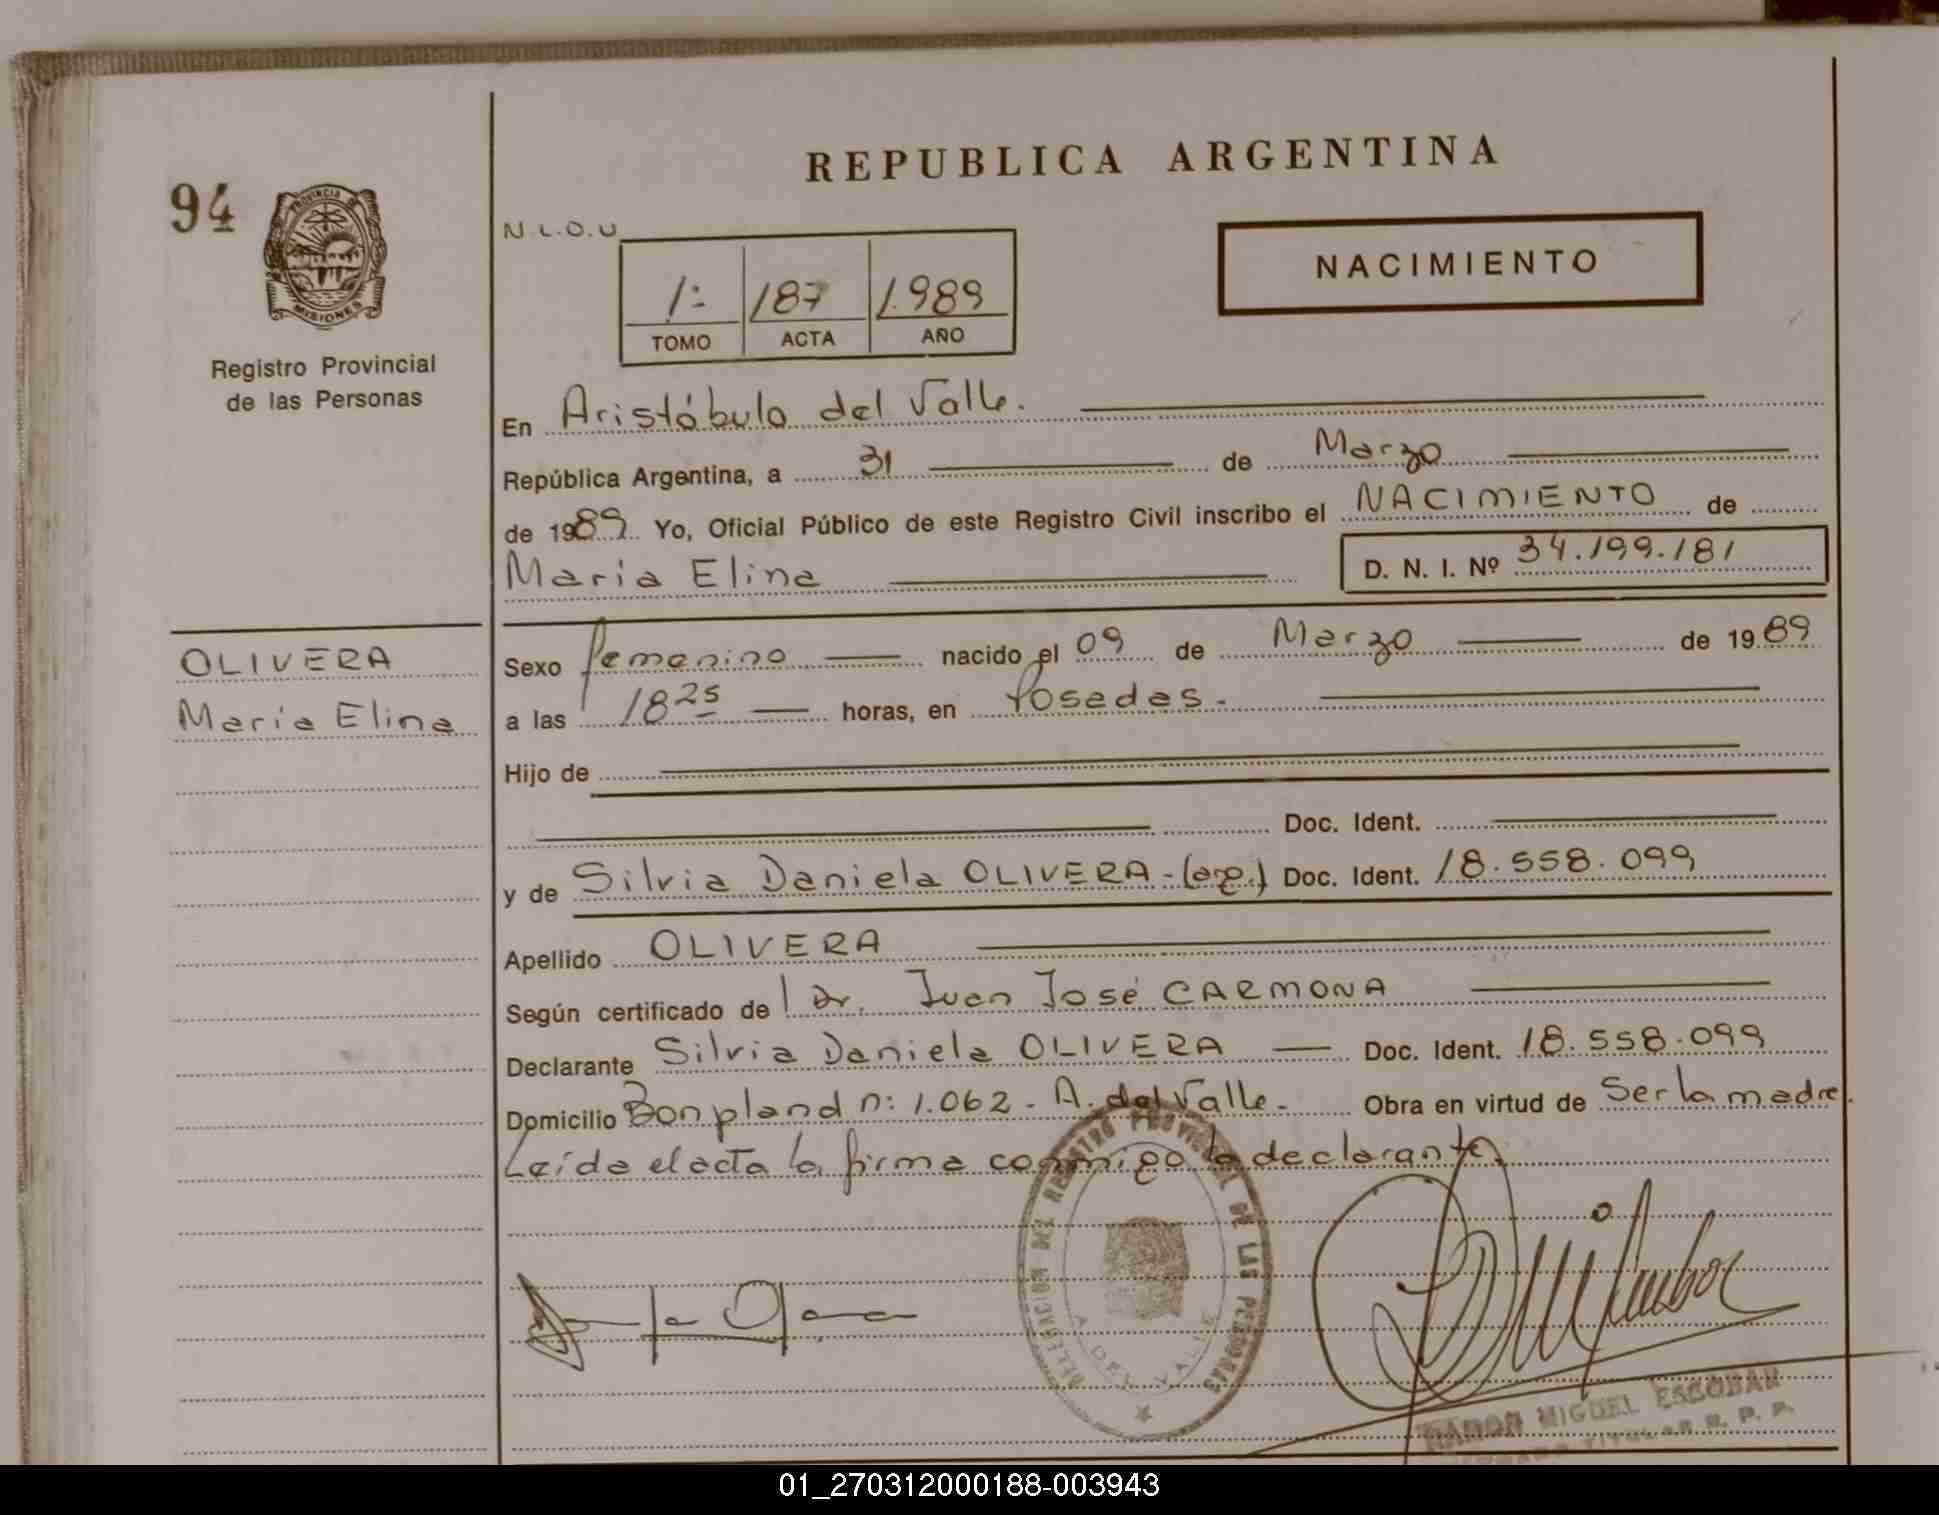 REPUBLICA ARGENTINA
94
PROVINCIA DE
MISIONES
Registro Provincial
de las Personas
N.L.O.U
NACIMIENTO
1º 187 1.989
TOMO ACTA AÑO
En Aristóbulo del Valle.
República Argentina, a 31 de Marzo
de 1989. Yo, Oficial Público de este Registro Civil inscribo el NACIMIENTO de
María Elina D. N. I. Nº 34.199.181
OLIVERA
María Elina
Sexo femenino nacido el 09 de Marzo de 1989
a las 18 25 horas, en Posadas.
Hijo de
Doc. Ident.
y de Silvia Daniela OLIVERA-(arg.) Doc. Ident. 18.558.099
Apellido OLIVERA
Según certificado de Dr. Juan José CARMONA
Declarante Silvia Daniela OLIVERA Doc. Ident. 18.558.099
Domicilio Bonpland nº 1.062. A. del Valle. Obra en virtud de Ser la madre.
Leída el acta la firma conmigo la declarante.
DELEGACION DEL REGISTRO PROVINCIAL DE LAS PERSONAS
A. DEL VALLE
RAMON MIGUEL ESCOBAR
TITULAR R. P. P.
01_270312000188-003943